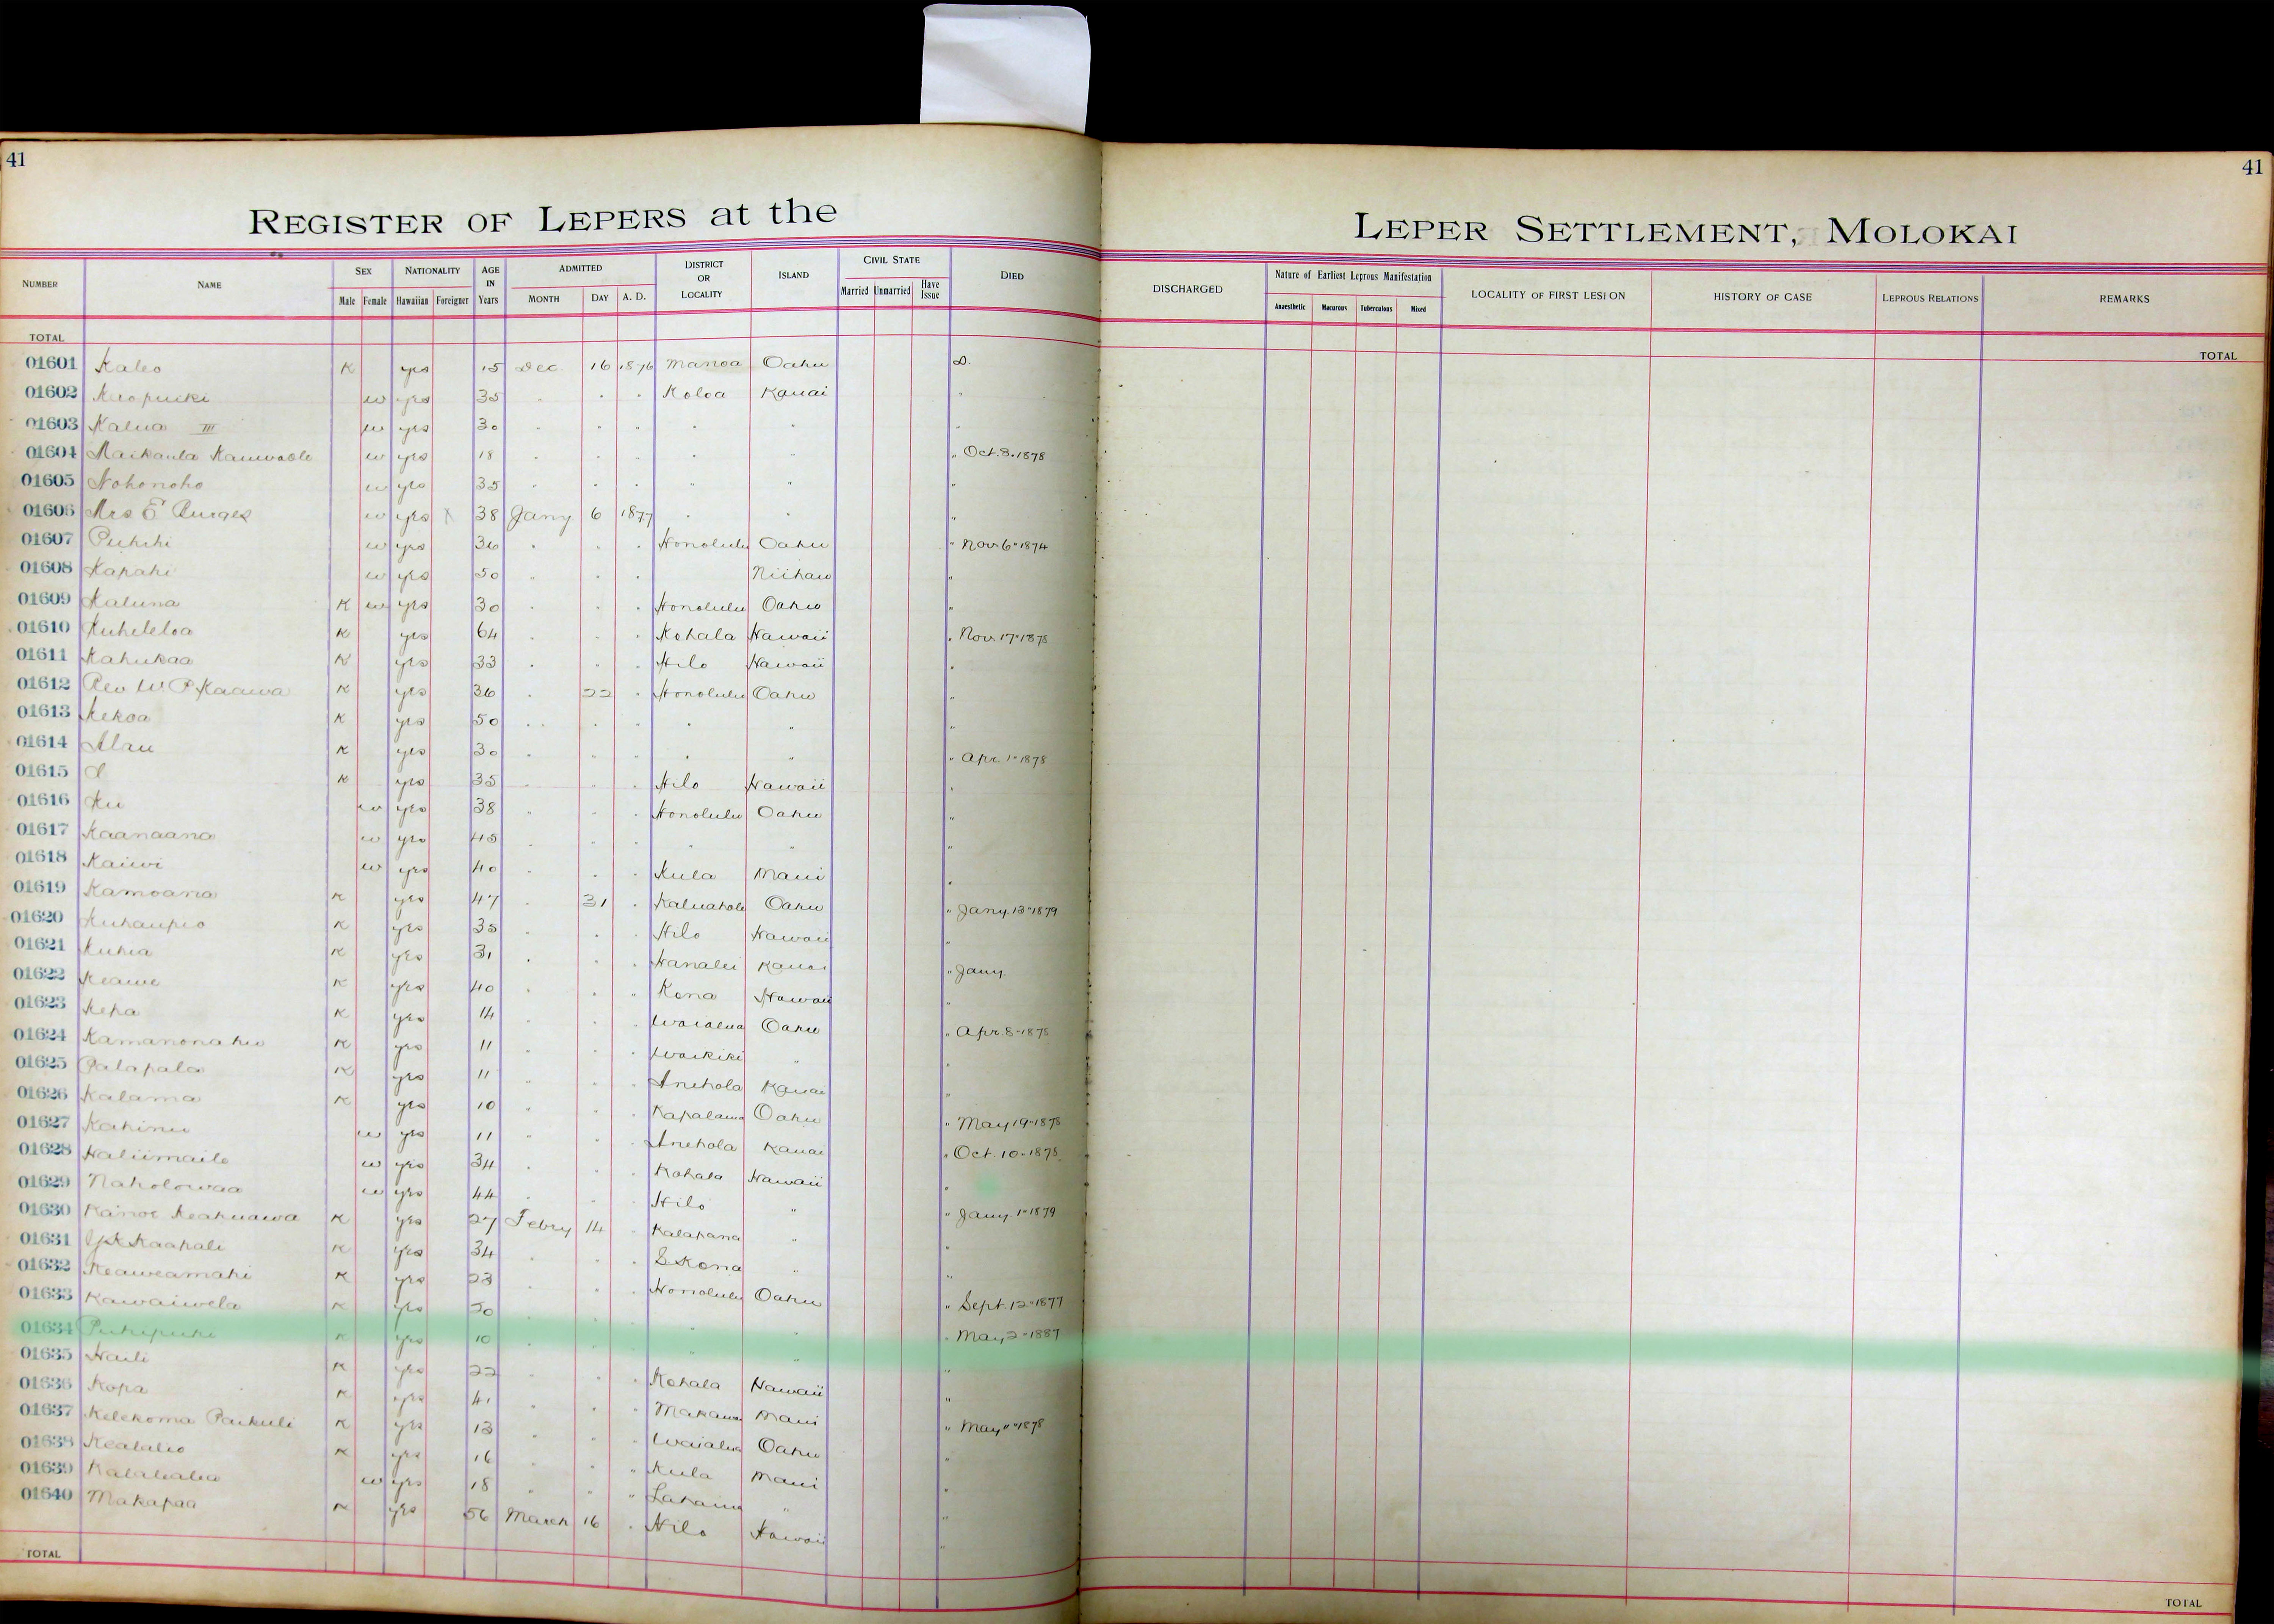 41
41
REGISTER OF LEPERS at the
LEPER SETTLEMENT, MOLOKAI
NUMBER NAME SEX Male Female NATIONALITY Hawaiian Foreigner AGE IN Years ADMITTED MONTH DAY A. D. DISTRICT OR LOCALITY ISLAND CIVIL STATE Married Unmarried Have Issue DIED DISCHARGED Nature of Earliest Leprous Manifestation Anaesthetic Macurous Tuberculous Mixed LOCALITY OF FIRST LESION HISTORY OF CASE LEPROUS RELATIONS REMARKS
TOTAL TOTAL
01601 Kaleo K yes 15 Dec. 16 1876 Manoa Oahu D.
01602 K w yes 35 " " " Koloa Kauai "
01603 Kalua III w yes 30 " " " " " "
01604 w yes 18 " " " " " " Oct. 3. 1878
01605 Nohonoho w yes 35 " " " " " "
01606 Mrs E Burges w yes X 38 Jany 6 1877 " " "
01607 Puhihi w yes 36 " " " Honolulu Oahu " Nov 6" 1874
01608 Kapahi w yes 50 " " " Niihau "
01609 Kaluna K w yes 30 " " " Honolulu Oahu "
01610 Kuheleloa K yes 64 " " " Kohala Hawaii " Nov 17" 1878
01611 Kahukaa K yes 33 " " " Hilo Hawaii "
01612 Rev W. P. Kaawa K yes 36 " 22 " Honolulu Oahu "
01613 Kekoa K yes 50 " " " " " "
01614 Alau K yes 30 " " " " " " Apr. 1" 1878
01615 K yes 35 " " " Hilo Hawaii "
01616 Ku w yes 38 " " " Honolulu Oahu "
01617 Kaanaana w yes 45 " " " " " "
01618 Kaiwi w yes 40 " " " Kula Maui "
01619 Kamoana K yes 47 " 31 " Kaluahole Oahu " Jany. 13" 1879
01620 Kuhaupio K yes 35 " " " Hilo Hawaii "
01621 Kuhia K yes 31 " " " Hanalei Kauai " Jany.
01622 Keawe K yes 40 " " " Kona Hawaii "
01623 Kepa K yes 14 " " " Waialua Oahu " Apr. 8" 1878
01624 Kamanonahu K yes 11 " " " Waikiki " "
01625 Palapala K yes 11 " " " Anehola Kauai "
01626 Kalama K yes 10 " " " Kapalama Oahu " May 19" 1878
01627 Kahinu w yes 11 " " " Anehola Kauai " Oct. 10" 1878
01628 Haliimaile w yes 34 " " " Kohala Hawaii "
01629 Naholowaa w yes 44 " " " Hilo " " Jany. 1" 1879
01630 Kanoe Keahuawa K yes 27 Febry 14 " Kalapana " "
01631 Kaahale K yes 34 " " " S Kona " "
01632 Keaweamahi K yes 23 " " " Honolulu Oahu " Sept. 12" 1877
01633 Kawaiwela K yes 20 " " " " " " May 2" 1887
01634 Puhipuhi K yes 10 " " " " " "
01635 Haili K yes 22 " " " Kohala Hawaii "
01636 Kopa K yes 41 " " " Makawao Maui " May 11" 1878
01637 Kelekoma Paikuli K yes 13 " " " Waialua Oahu "
01638 Kealalio K yes 16 " " " Kula Maui "
01639 Kalahalia w yes 18 " " " Lahaina " "
01640 Makapaa K yes 56 March 16 " Hilo Hawaii "
TOTAL TOTAL